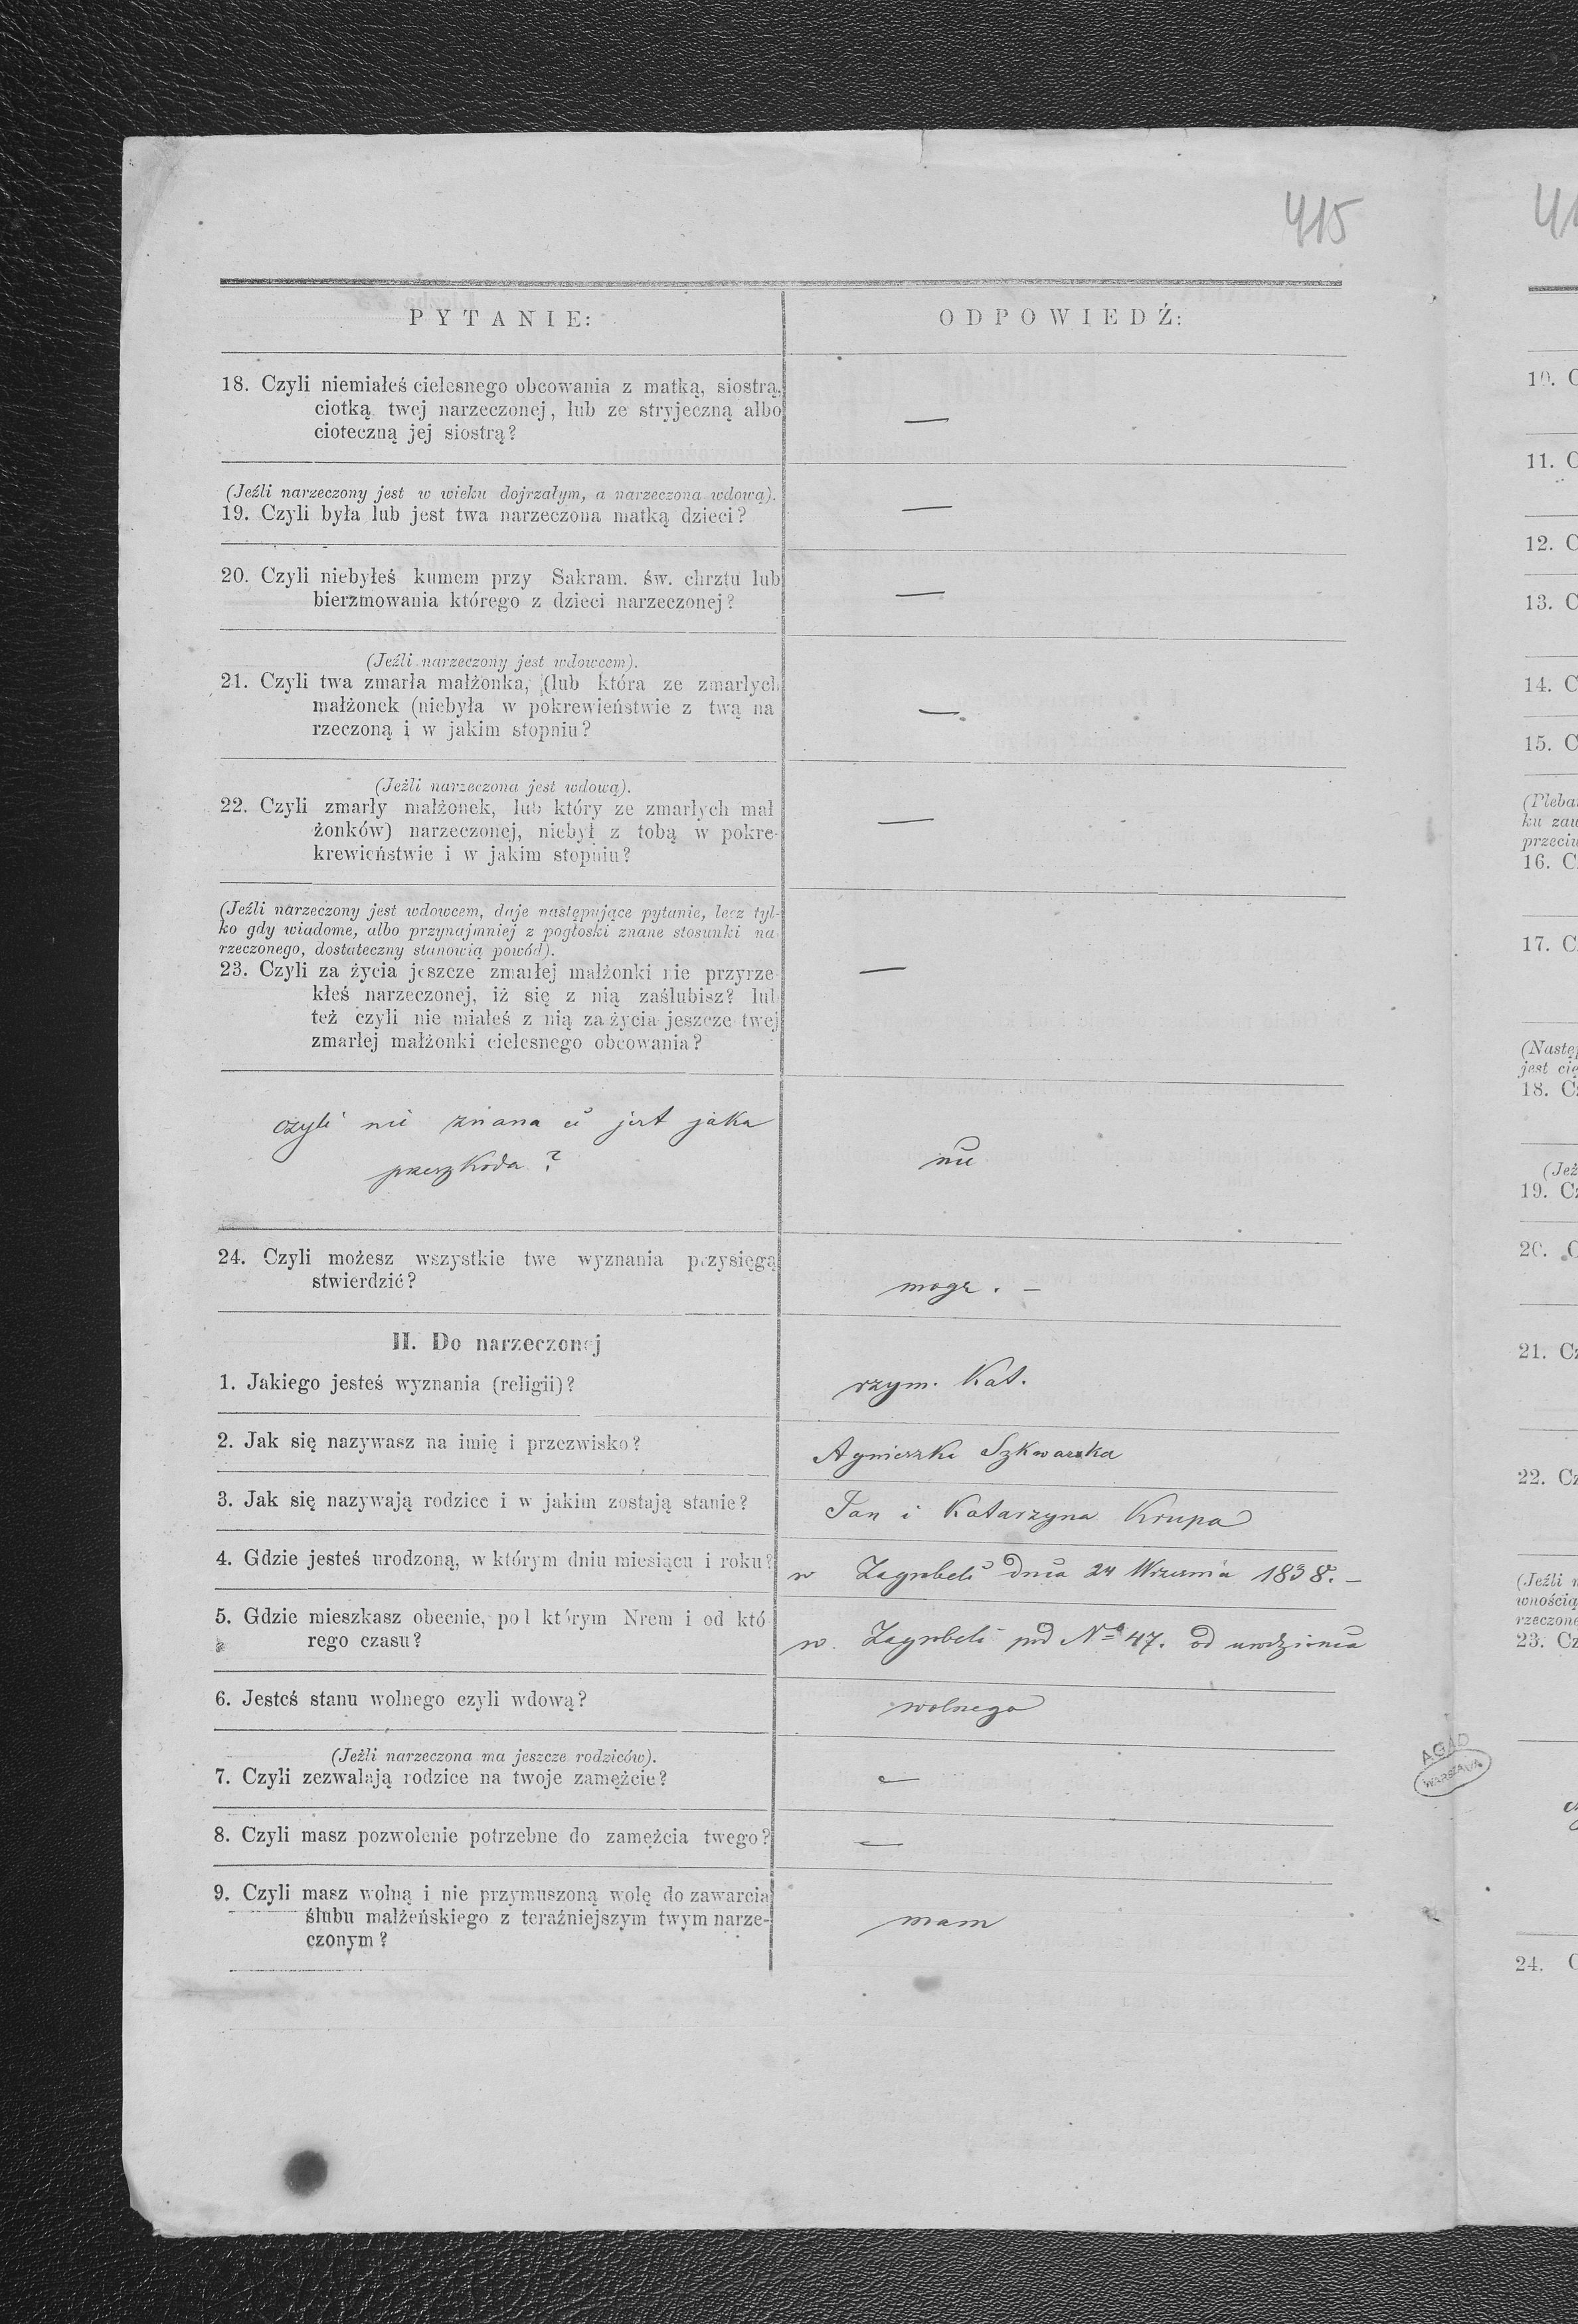 415
41
PYTANIE:
ODPOWIEDŹ:
18. Czyli niemiałeś cielesnego obcowania z matką, siostrą,
ciotką twej narzeczonej, lub ze stryjeczną albo
cioteczną jej siostrą?
—
(Jeźli narzeczony jest w wieku dojrzałym, a narzeczona wdową).
19. Czyli była lub jest twa narzeczona matką dzieci?
—
20. Czyli niebyłeś kumem przy Sakram. św. chrztu lub
bierzmowania którego z dzieci narzeczonej?
—
(Jeźli narzeczony jest wdowcem).
21. Czyli twa zmarła małżonka, (lub która ze zmarłych
małżonek (niebyła w pokrewieństwie z twą na
rzeczoną i w jakim stopniu?
—
(Jeźli narzeczona jest wdową).
22. Czyli zmarły małżonek, lub który ze zmarłych mał
żonków) narzeczonej, niebył z tobą w pokre-
krewieństwie i w jakim stopniu?
—
(Jeźli narzeczony jest wdowcem, daje następujące pytanie, lecz tyl-
ko gdy wiadome, albo przynajmniej z pogłoski znane stosunki na
rzeczonego, dostateczny stanowią powód).
23. Czyli za życia jeszcze zmarłej małżonki nie przyrze-
kłeś narzeczonej, iż się z nią zaślubisz? lub
też czyli nie miałeś z nią za życia jeszcze twej
zmarłej małżonki cielesnego obcowania?
—
czyli nie znana ci jest jaka
przeszkoda?
nie
24. Czyli możesz wszystkie twe wyznania przysięgą
stwierdzić?
mogę. –
II. Do narzeczonej
1. Jakiego jesteś wyznania (religii)?
rzym. Kat.
2. Jak się nazywasz na imię i przezwisko?
Agnieszka Szkwarka
3. Jak się nazywają rodzice i w jakim zostają stanie?
Jan i Katarzyna Krupa
4. Gdzie jesteś urodzoną, w którym dniu miesiącu i roku?
w Zagrobeli dnia 24 Września 1838. –
5. Gdzie mieszkasz obecnie, pod którym Nrem i od któ
rego czasu?
w Zagrobeli pod No 47. od urodzenia
6. Jesteś stanu wolnego czyli wdową?
wolnego
(Jeźli narzeczona ma jeszcze rodziców).
7. Czyli zezwalają rodzice na twoje zamężcie?
—
8. Czyli masz pozwolenie potrzebne do zamężcia twego?
—
9. Czyli masz wolną i nie przymuszoną wolę do zawarcia
ślubu małżeńskiego z teraźniejszym twym narze-
czonym?
mam
AGAD
WARSZAWA
10. C
11. C
12. C
13. C
14. C
15. C
(Pleba
ku zau
przeciw
16. C
17. C
(Nastę
jest cię
18. Cz
(Jeź
19. Cz
20. C
21. Cz
22. Cz
(Jeźli n
wnością
rzeczone
23. Cz
24. C